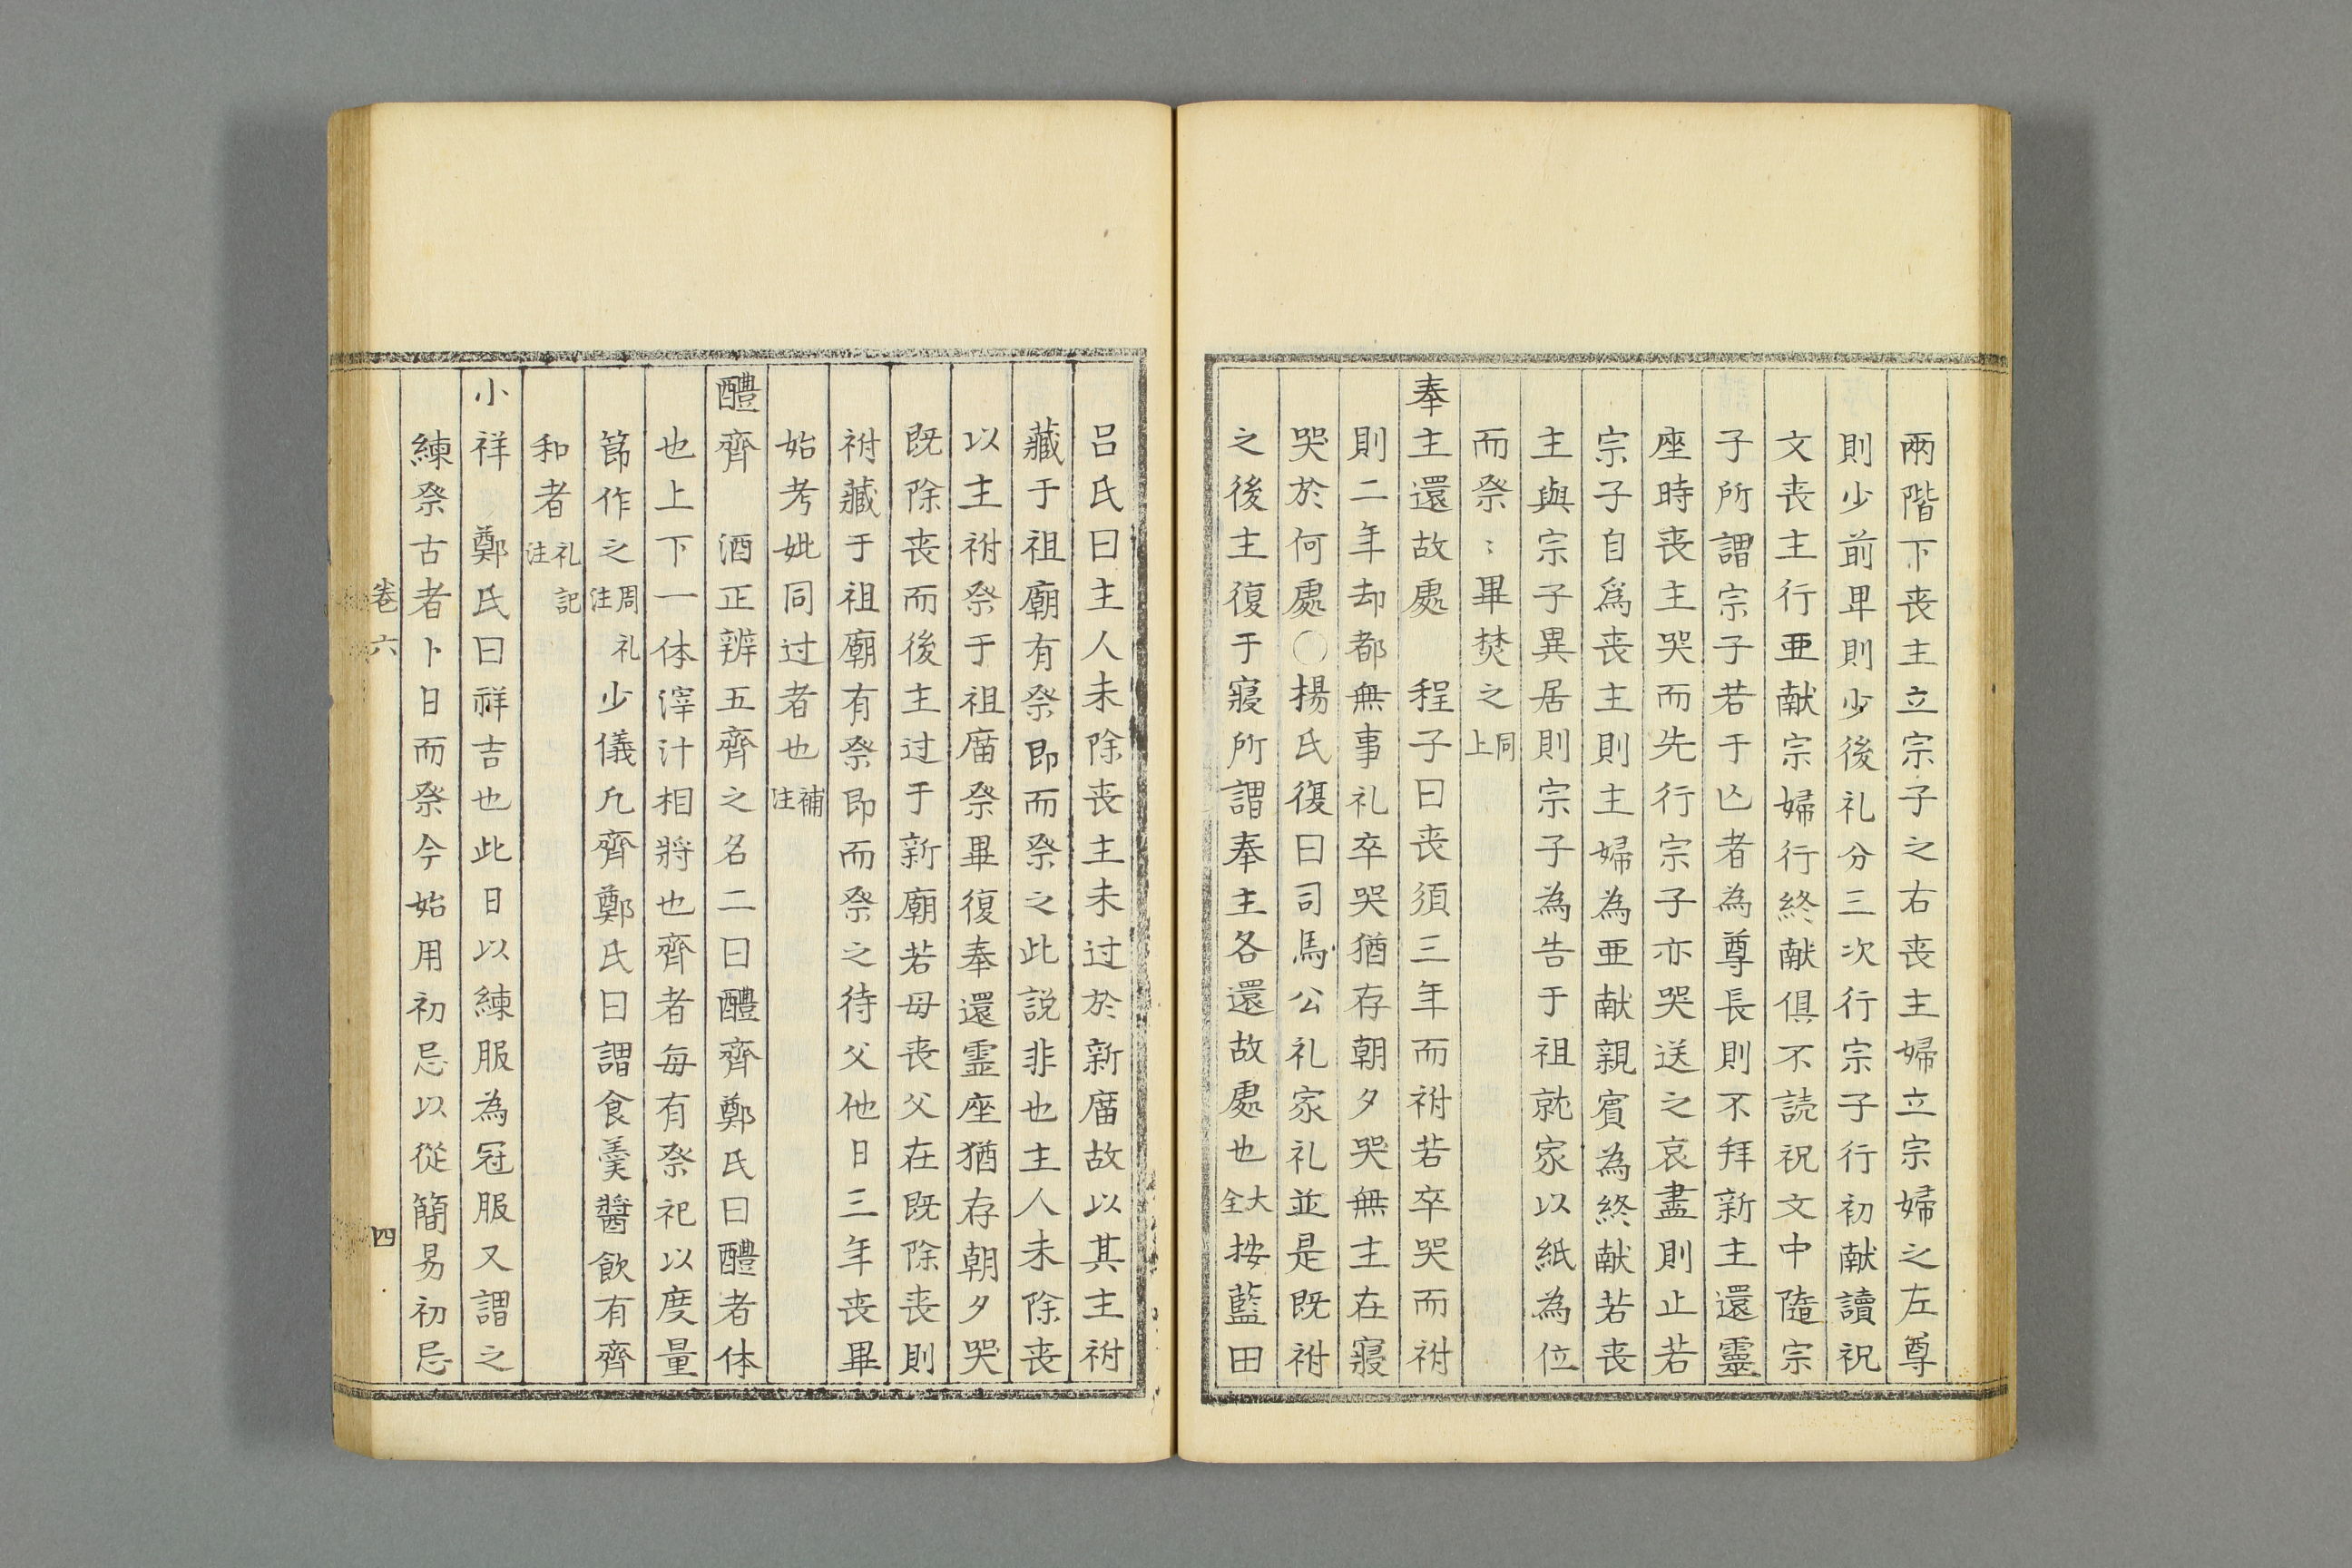 兩階下丧主立宗子之右丧主婦立宗婦之左尊
則少前卑則少後礼分三次行宗子行初献讀祝
文丧主行亜献宗婦行終献俱不読祝文中隨宗
子所謂宗子若于亾者為尊長則不拜新主還靈
座時丧主哭而先行宗子亦哭送之哀盡則止若
宗子自爲丧主則主婦為亜献親賓為終献若丧
主與宗子異居則宗子為告于祖就家以紙為位
而祭〻畢焚之同上
奉主還故處 程子曰丧須三年而祔若卒哭而祔
則二年却都無事礼卒哭猶存朝夕哭無主在寢
哭於何處〇揚氏復曰司馬公礼家礼並是既祔
之後主復于寢所謂奉主各還故處也大全按藍田
吕氏曰主人未除丧主未过於新庿故以其主祔
藏于祖廟有祭即而祭之此説非也主人未除丧
以主祔祭于祖庿祭畢復奉還霊座猶存朝夕哭
既除丧而後主过于新廟若母丧父在既除丧則
祔藏于祖廟有祭即而祭之待父他日三年丧畢
始考妣同过者也補注
醴齊 酒正辨五齊之名二曰醴齊鄭氏曰醴者体
也上下一体滓汁相將也齊者毎有祭祀以度量
節作之周礼注少儀凡齊鄭氏曰謂食羹醬飲有齊
和者礼記注
小祥 鄭氏曰祥吉也此日以練服為冠服又謂之
練祭古者卜日而祭今始用初忌以從簡易初忌
卷六
四